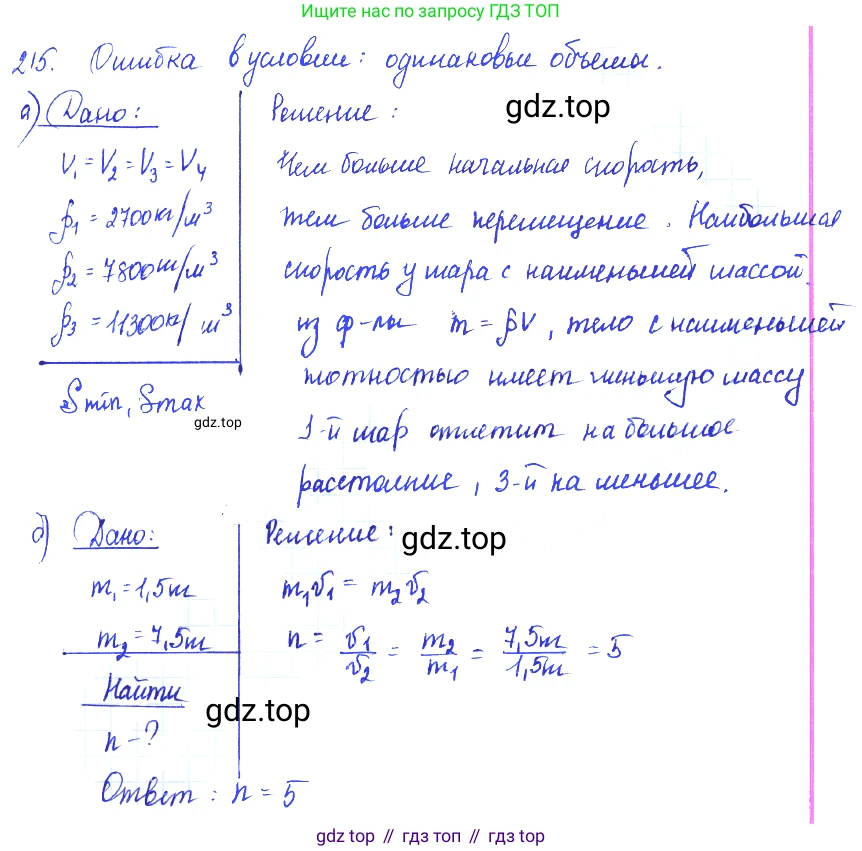 Ищите нас по запросу ГДЗ ТОП
215. Ошибка в условии: одинаковые объемы.
а) Дано:
V₁ = V₂ = V₃ = V₄
ρ₁ = 2700 кг/м³
ρ₂ = 7800 кг/м³
ρ₃ = 11300 кг/м³
Smin, Smax
gdz.top
Решение:
gdz.top
Чем больше начальная скорость,
тем больше перемещение. Наибольшая
скорость у шара с наименьшей массой.
из ф-лы m = ρV, тело с наименьшей
плотностью имеет меньшую массу
1-й шар отлетит на большое
расстояние, 3-й на меньшее.
б) Дано:
m₁ = 1,5 т
m₂ = 7,5 т
Найти
n - ?
Решение:
gdz.top
m₁v₁ = m₂v₂
n = v₁/v₂ = m₂/m₁ = 7,5т/1,5т = 5
gdz.top
Ответ: n = 5
gdz top // гдз топ // gdz top